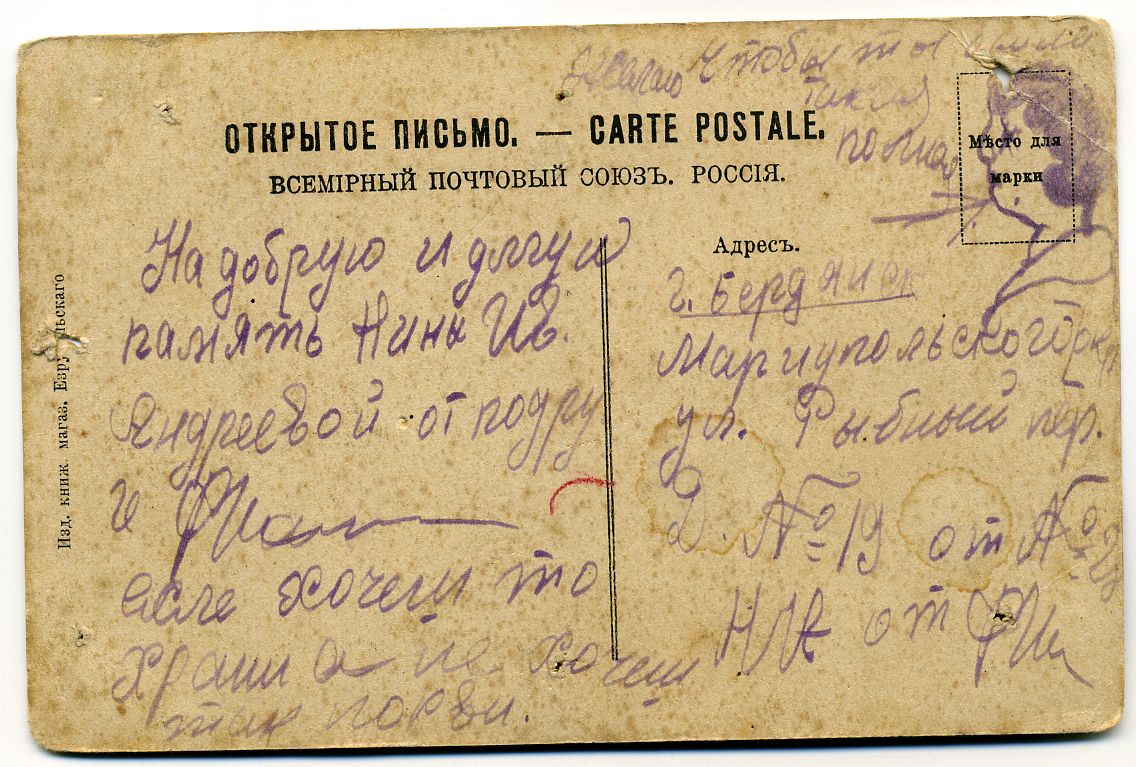 Желаю чтобы ты была
такая
полная
ОТКРЫТОЕ ПИСЬМО. — CARTE POSTALE.
ВСЕМІРНЫЙ ПОЧТОВЫЙ СОЮЗЪ. РОССІЯ.
Мѣсто для
марки
Изд. книж. магаз. Езру льскаго
На добрую и долгую
память Нины Ив.
Андреевой от подру
ги
если хочеш то
храни а не хочеш
так порви.
Адресъ.
г. Бердянск
Мариупольского
ул. Рыбный пер.
Д. № 19 от
от